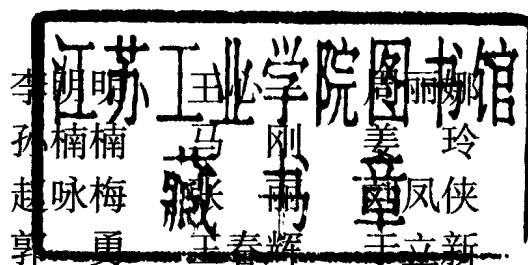 江苏工业学院图书馆
藏书章
李明明 王 周丽娜
孙楠楠 马刚 姜玲
赵咏梅 张 凤侠
郭勇 王春辉 于立新